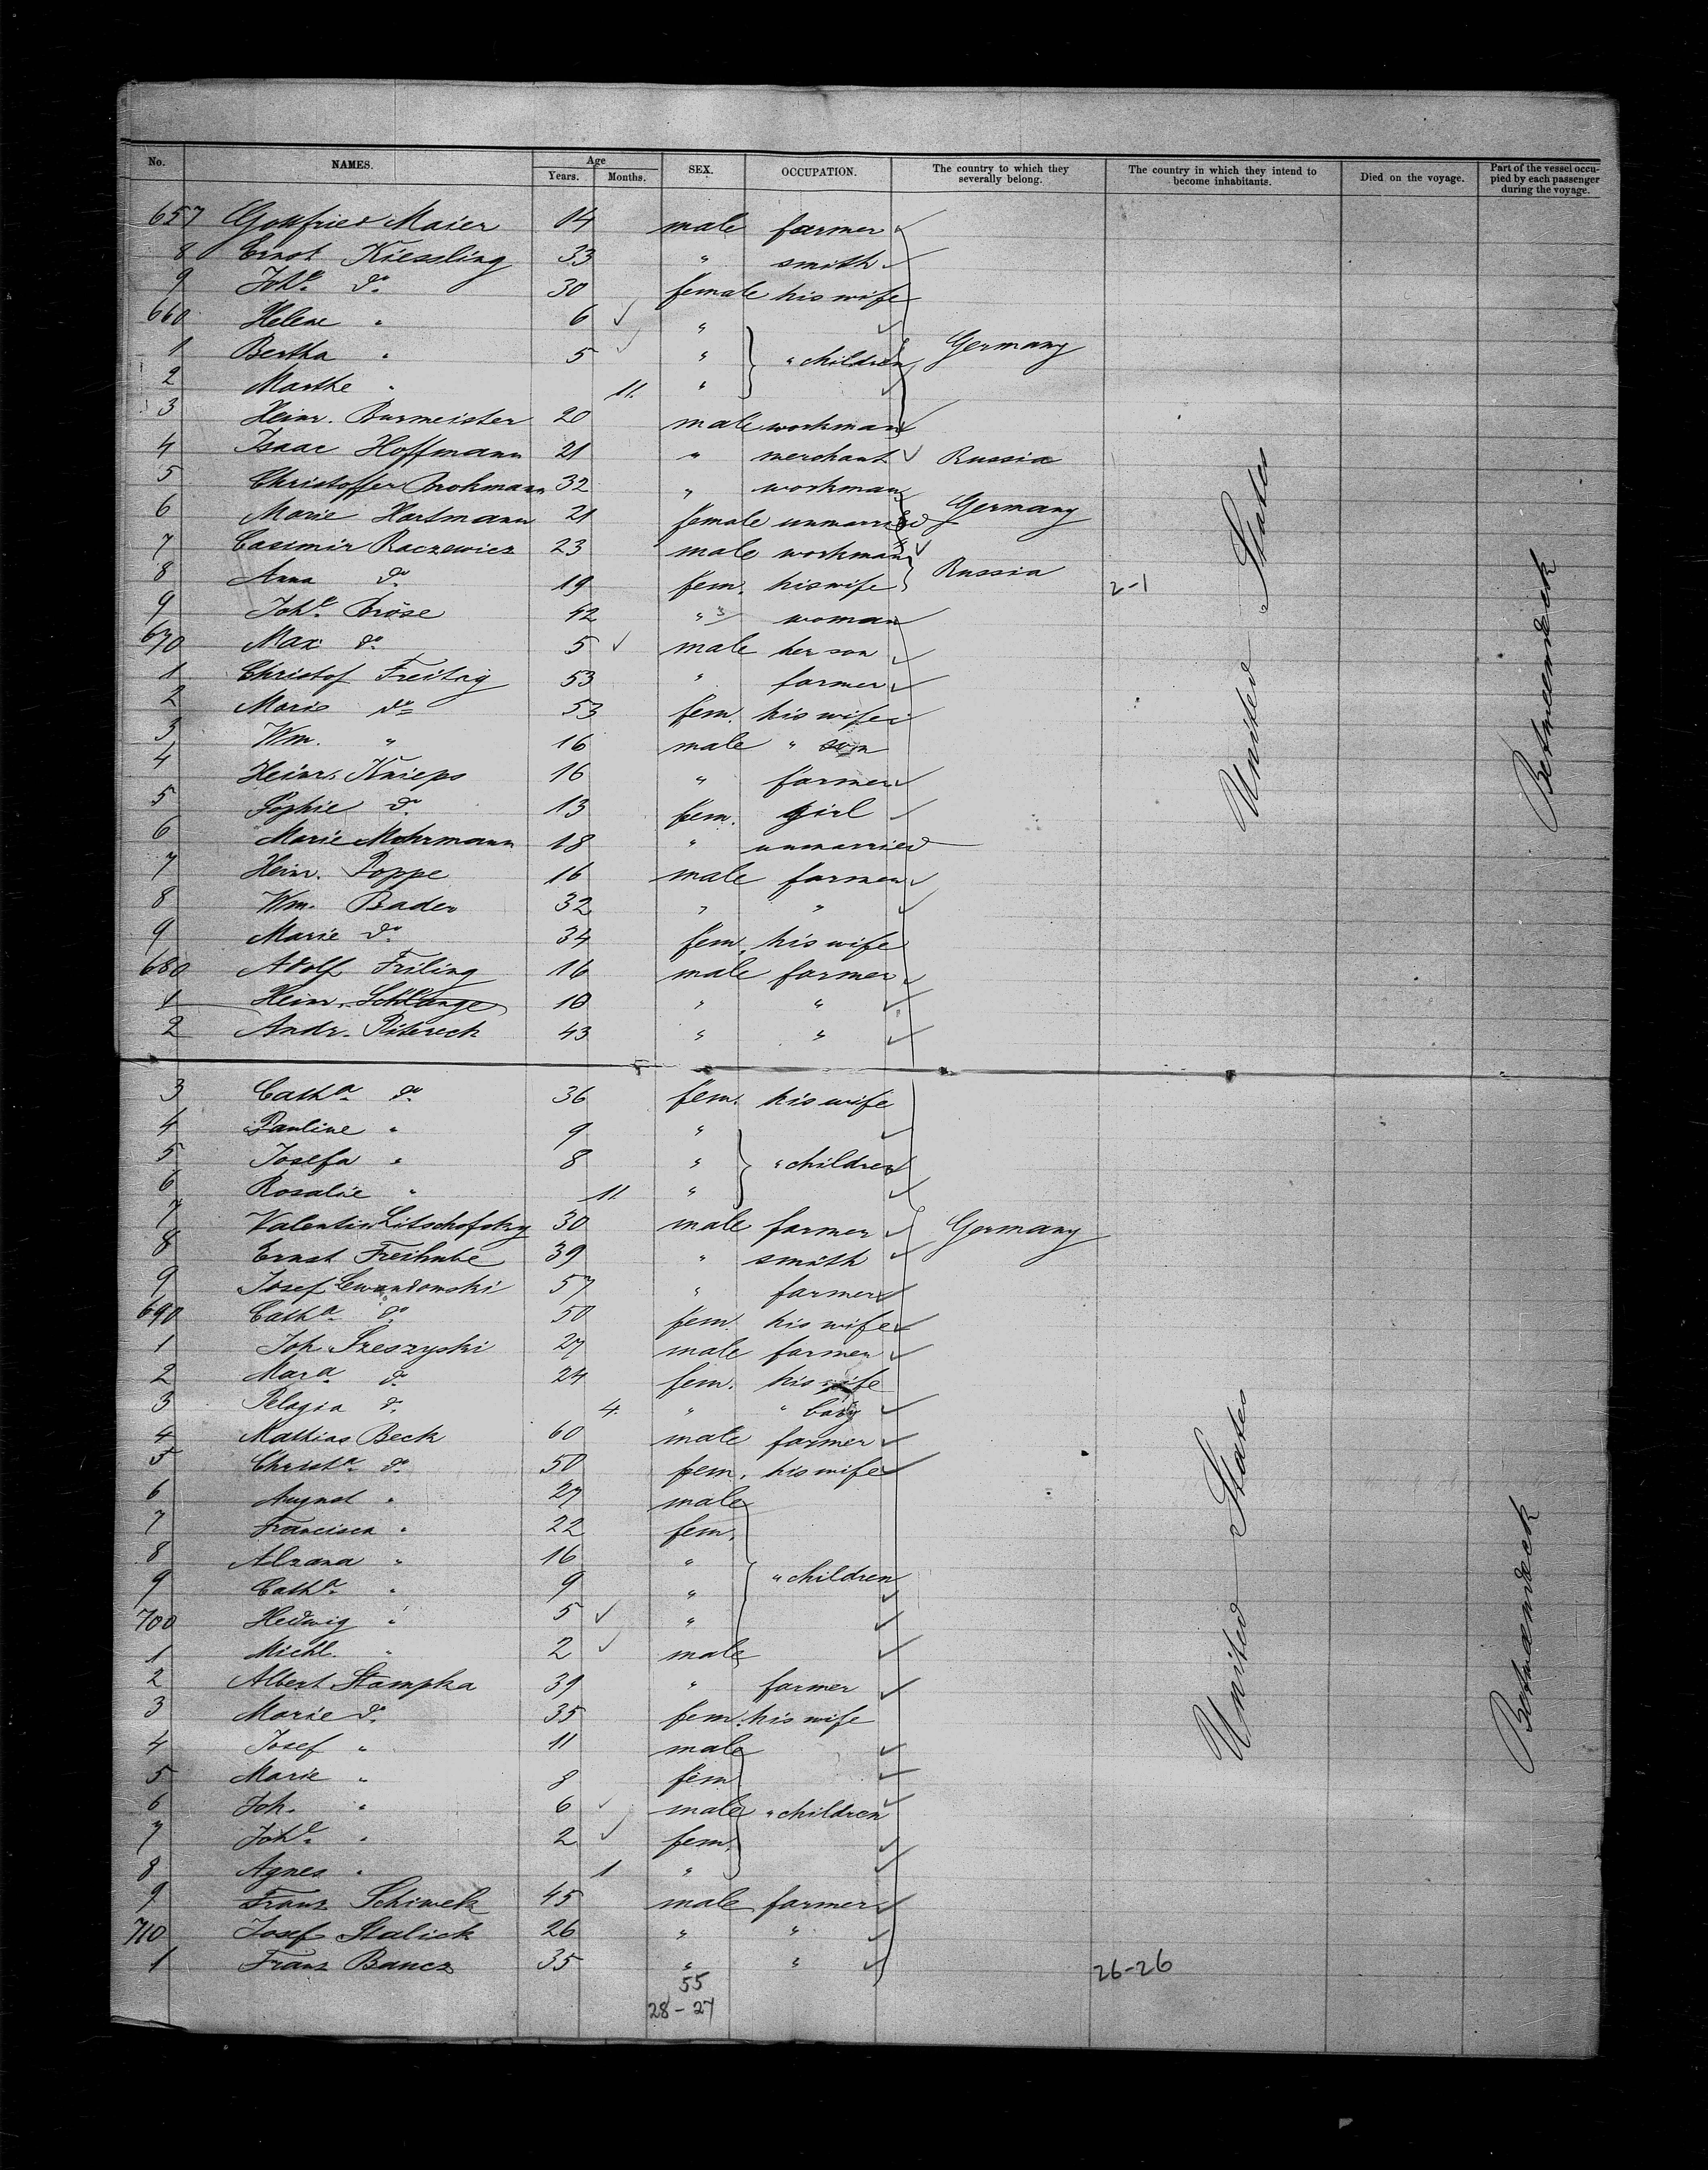 No. NAMES. Age Years. Months. SEX. OCCUPATION. The country to which they severally belong. The country in which they intend to become inhabitants. Died on the voyage. Part of the vessel occupied by each passenger during the voyage.
657 Gottfried Maier 14 male farmer
8 Ernst Kiessling 33 " smith
9 Johe do 30 female his wife
660 Helene " 6 "
1 Bertha " 5 " " children Germany
2 Marthe " 11. "
3 Heinr. Burmeister 20 male workman
4 Isaac Hoffmann 21 " merchant Russia
5 Christoffer Brohmann 32 " workman
6 Marie Hartmann 21 female unmarried Germany
7 Casimir Raczewicz 23 male workman
8 Anna do 19 fem. his wife Russia 2-1
9 Johe Bröse 42 " woman
670 Max do 5 male her son
1 Christof Freitag 53 " farmer
2 Maris do 53 fem. his wife
3 Wm. " 16 male " son
4 Heinr. Knieps 16 " farmer
5 Sophie do 13 fem. girl
6 Marie Mohrmann 18 " unmarried
7 Heinr. Poppe 16 male farmer
8 Wm. Bader 32 " "
9 Marie do 34 fem. his wife
680 Adolf Friling 16 male farmer
1 Heinr. Schlange 10 " "
2 Andr. Pitereck 43 " "
United States
Betweendeck
3 Catha do 36 fem. his wife
4 Pauline " 9 "
5 Josefa " 8 " " children
6 Rosalie " 11. "
7 Valentin Litschofsky 30 male farmer Germany
8 Ernst Freihube 39 " smith
9 Josef Lewandowski 57 " farmer
690 Catha do 50 fem. his wife
1 Joh. Szeszyski 27 male farmer
2 Mara do 24 fem. his wife
3 Pelagia do 4. " " baby
4 Mathias Beck 60 male farmer
5 Christa do 50 fem. his wife
6 August " 27 male
7 Francisca " 22 fem.
8 Alzana " 16 "
9 Catha " 9 " " children
700 Hedwig " 5 "
1 Michl. " 2 male
2 Albert Stampka 39 " farmer
3 Marie do 35 fem. his wife
4 Josef " 11 male
5 Marie " 8 fem
6 Joh. " 6 male " children
7 Johe " 2 fem.
8 Agnes " 1 "
9 Franz Schiwek 45 male farmer
710 Josef Stalick 26 " "
1 Franz Bancz 35 " " 26-26
United States
Betweendeck
55
28-27